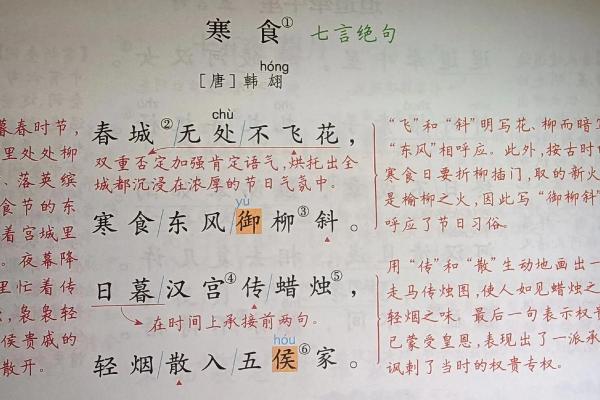 寒食① 七言绝句
hóng
[唐]韩翃
暮春时节,
里处处柳
、落英缤
食节的东
着宫城里
。夜幕降
里忙着传
,袅袅轻
侯贵戚的
散开。
chù
春城②/无处/不飞花,
双重否定加强肯定语气,烘托出全
城都沉浸在浓厚的节日气氛中。
yù
寒食/东风/御柳③斜。
日暮/汉宫④/传蜡烛⑤,
在时间上承接前两句。
hóu
轻烟/散入/五侯⑥家。
“飞”和“斜”明写花、柳而暗写
“东风”相呼应。此外,按古时的
寒食日要折柳插门,取的新火
是榆柳之火,因此写“御柳斜”
呼应了节日习俗。
用“传”和“散”生动地画出一
走马传烛图,使人如见蜡烛之
轻烟之味。最后一句表示权贵
已蒙受皇恩,表现出了一派承
讽刺了当时的权贵专权。